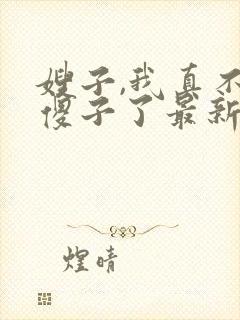 嫂子,我真不
傻子了最新
煌晴